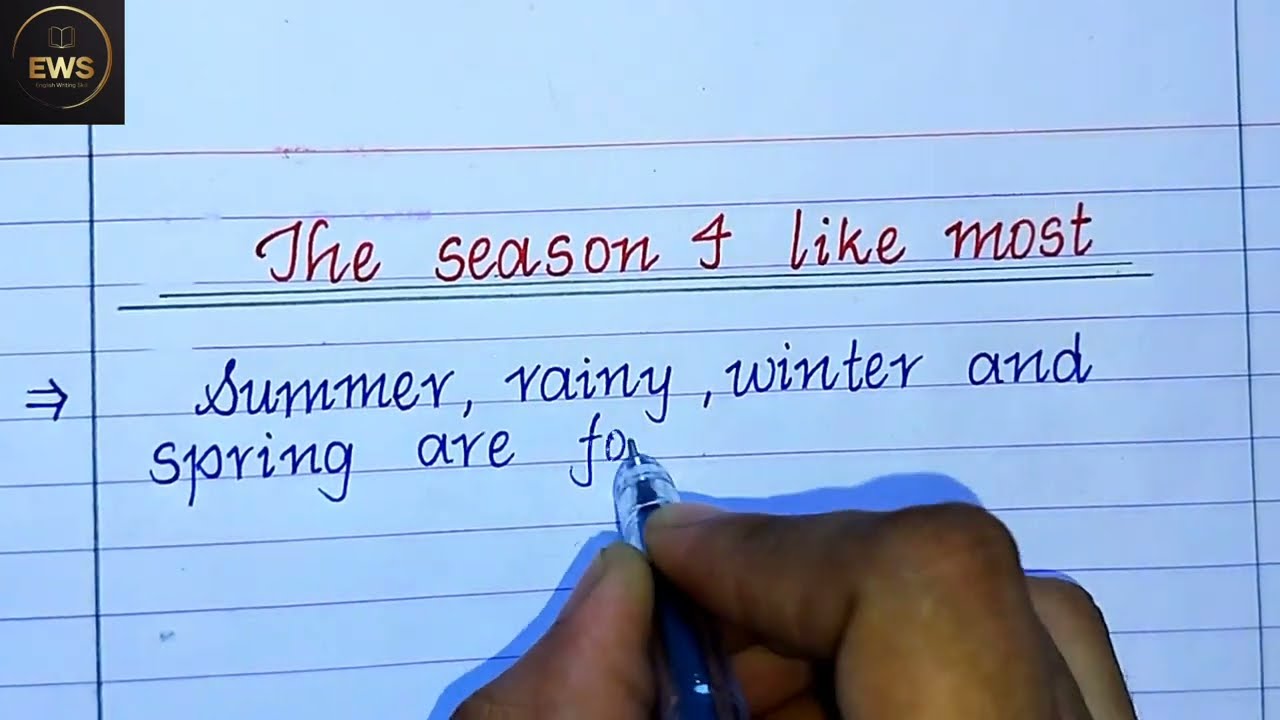 EWS
English Writing Skill
The season I like most
⇒ Summer, rainy, winter and
spring are fo